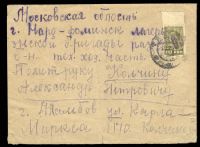 Московская область
г. Наро-фоминск лагерь
бригады
тех. хоз. часть
Политруку Колчину
Александру Петровичу
г. Ул. Карла-
Маркса 170. Колчина